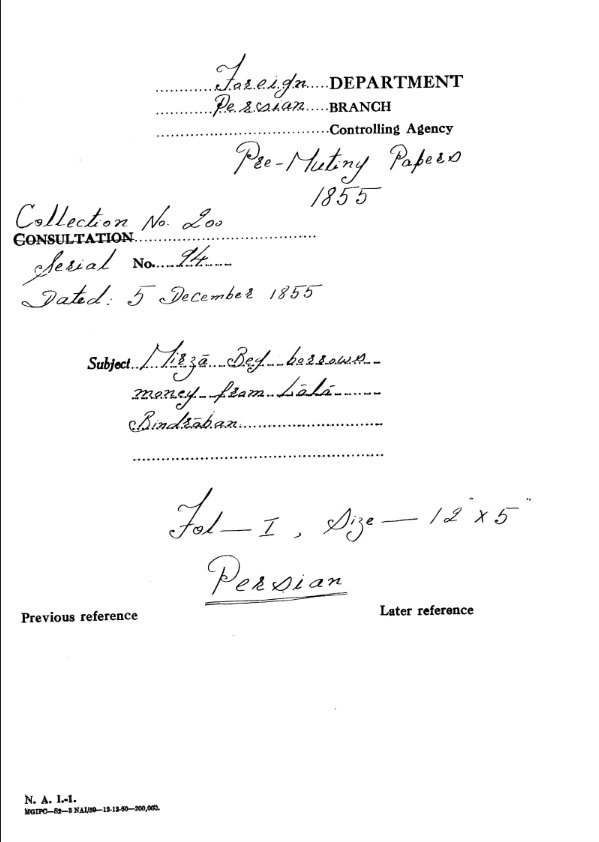 Foreign DEPARTMENT
Persian BRANCH
Controlling Agency
Pre-Mutiny Papers
1855
Collection No. 200
CONSULTATION
Serial No. 94
Dated: 5 December 1855
Subject Mirzā Beg borrows
money from Lālā
Bindrāban
Fol — I, Size — 12" x 5"
Persian
Previous reference
Later reference
N. A. I.-1.
MGIPC—52—3 NAI/59—12-12-60—200,000.